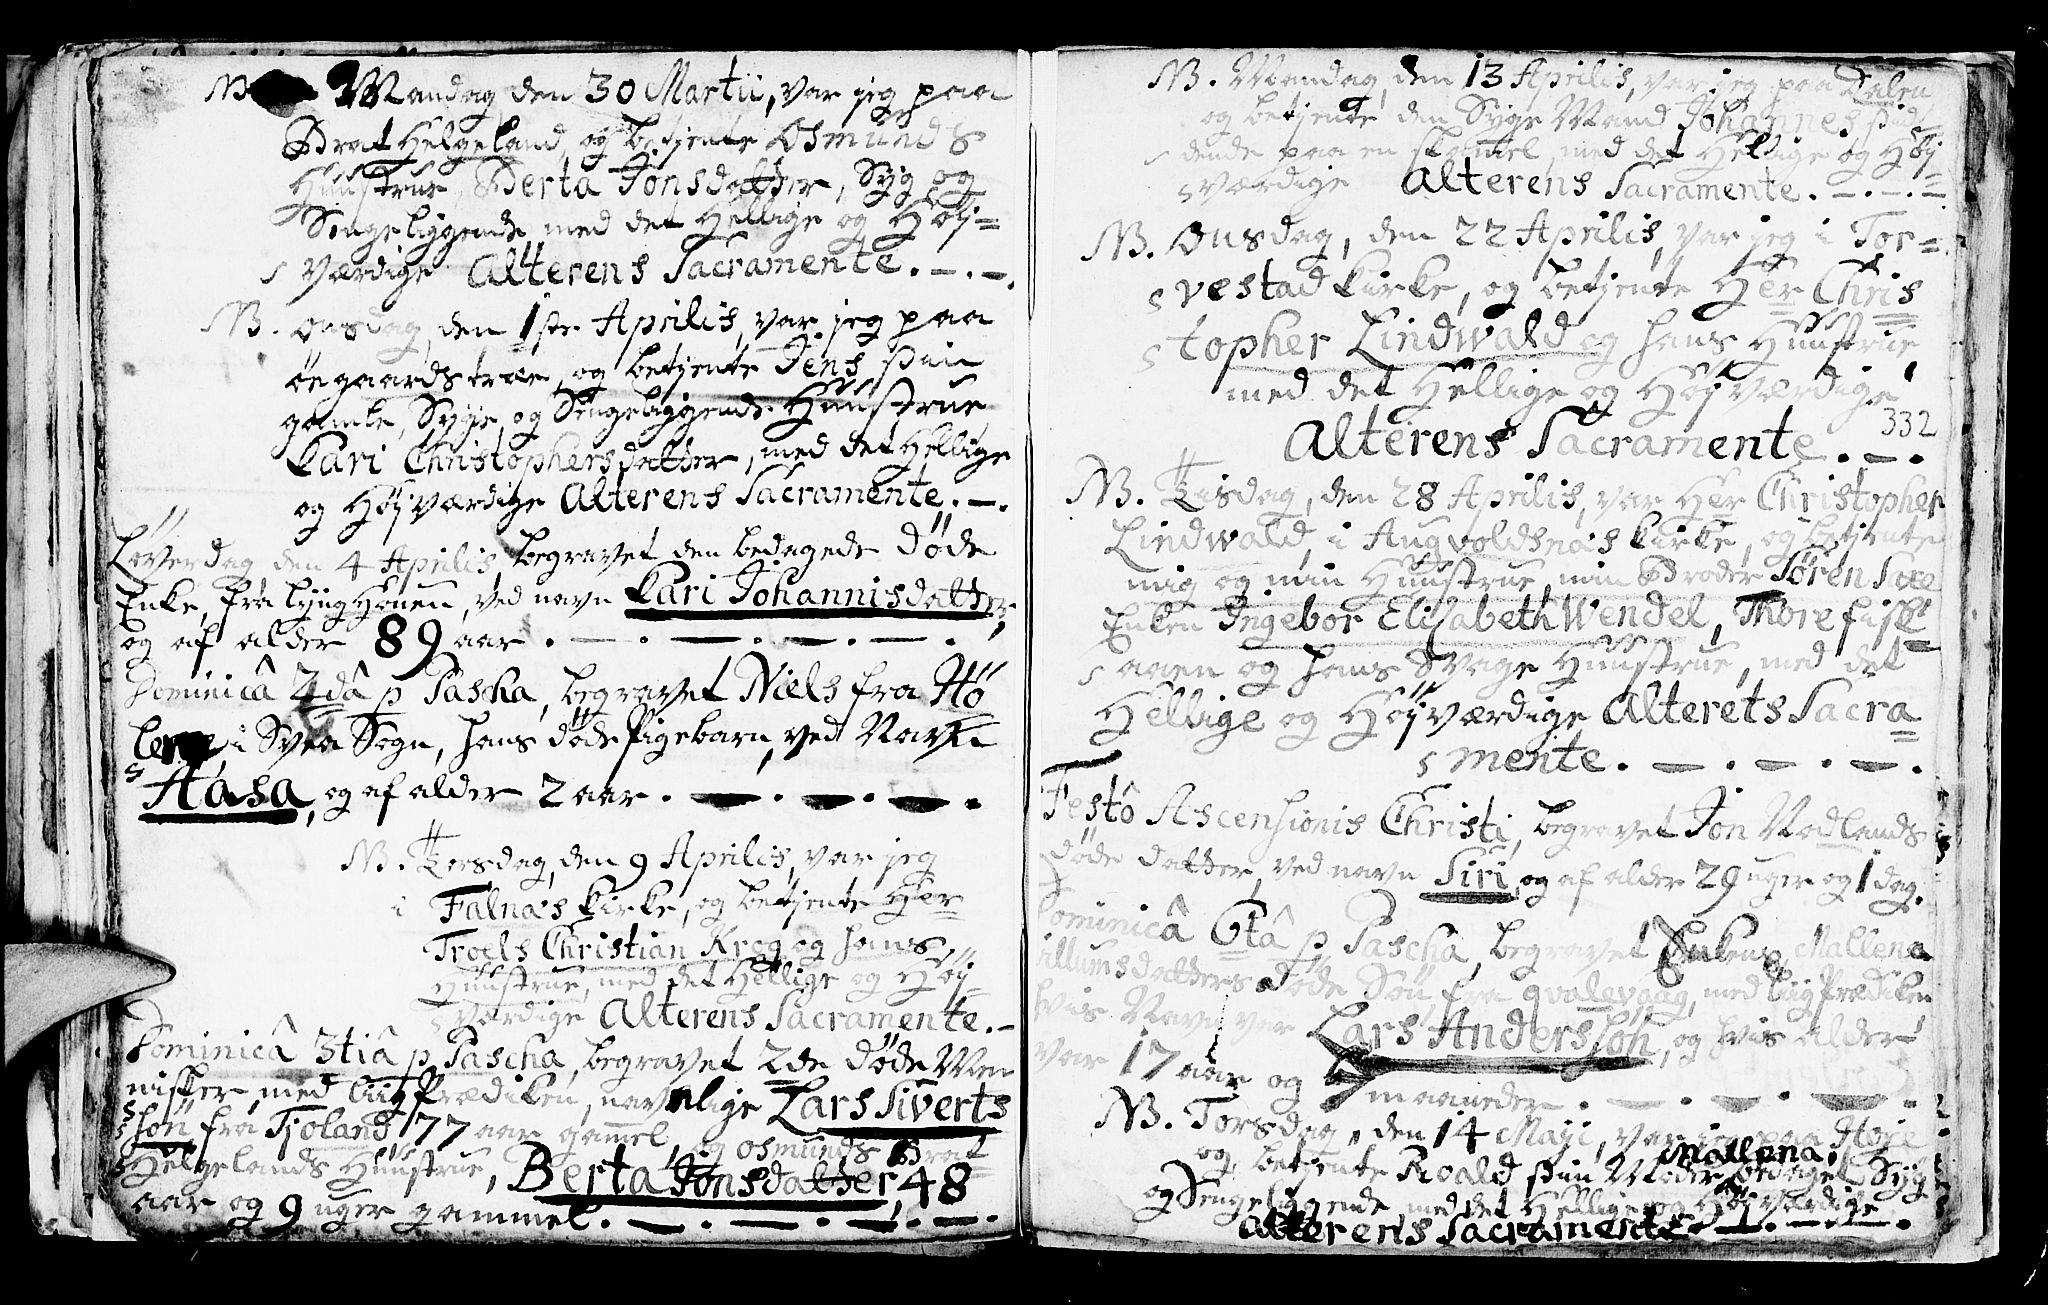 NB. Mandag den 30 Martii, var jeg paa
Brat Helgeland, og betjente Osmunds
Huustrue, Berta Jonsdatter, Syg og
Sengeliggende, med det Hellige og Høj=
værdige Alterens Sacramente.
NB. Onsdag, den 1ste Aprilis, var jeg paa
øegaards træe, og betjente Jens sin
gamle, Syge, og Sengeliggende Huustrue
Kari Christophersdatter, med det Hellige
og Højværdige Alterens Sacramente.
Løverdag den 4 Aprilis, begravet den bedagede døde
Enke, fra Lyng Houen, ved navn Kari Johannisdatter,
og af alder 89 aar.
Dominicâ 2dâ p Pascha, begravet Niels fra Hø
i Svea Sogn, hans døde Pigebarn, ved Navn
Aasa, og af alder 2 aar.
NB. Torsdag, den 9 Aprilis, var jeg
i Falnæs kirke, og betjente Her
Troels Christian Krog og hans
Huustrue, med det Hellige og Høj=
værdige Alterens Sacramente.
Dominicâ 3tiâ p Pascha, begravet 2de døde Men
nisker, med LiigPrædiken, navnlige Lars Siverts
søn fra Tjoland 77 aar gammel, og Osmunds Brat
Helgelands Huustrue, Berta Jonsdatter, 48
aar og 9 uger gammel.
NB. Mandag, den 13 Aprilis, var jeg paa Dalen
og betjente den Syge Mand Johannes sid=
dende paa en skammel med det Hellige og Høj
værdige Alterens Sacramente.
NB. Onsdag, den 22 Aprilis, var jeg i Tor=
vestad kirke, og betjente Her Chris
topher Lindwald og hans Huustrue
med det Hellige og Højværdige
Alterens Sacramente.
332
NB. Tisdag, den 28 Aprilis, var Her Christopher
Lindwald, i Augvoldsnæs kirke, og betjente
mig og min Huustrue, min Broder Søren Saxe
Enken Ingebor Elisabeth Wendel, Thore fisk
aaen og hans Svage Huustrue, med det
Hellige og Højværdige Alterets Sacra=
mente.
Festô Ascensionis Christi, begravet Jon Vadlands
døde datter, ved navn Siri, og af alder 29 uger og 1 dag.
Dominicâ 6tâ p Pascha, begravet Enkens Mallena
illumsdatters døde Søn fra qvalevaag, med LiigPrædiken
hvis Navn var Lars Andersson, og hvis alder
var 17 aar og maaneder.
NB. Torsdag, den 14 Maji, var jeg paa Høje
og betjente Roald sin Moder Mallena, bedaget Syg
og Sengeliggende, med det Hellige og Højværdige
Alterens Sacramente.